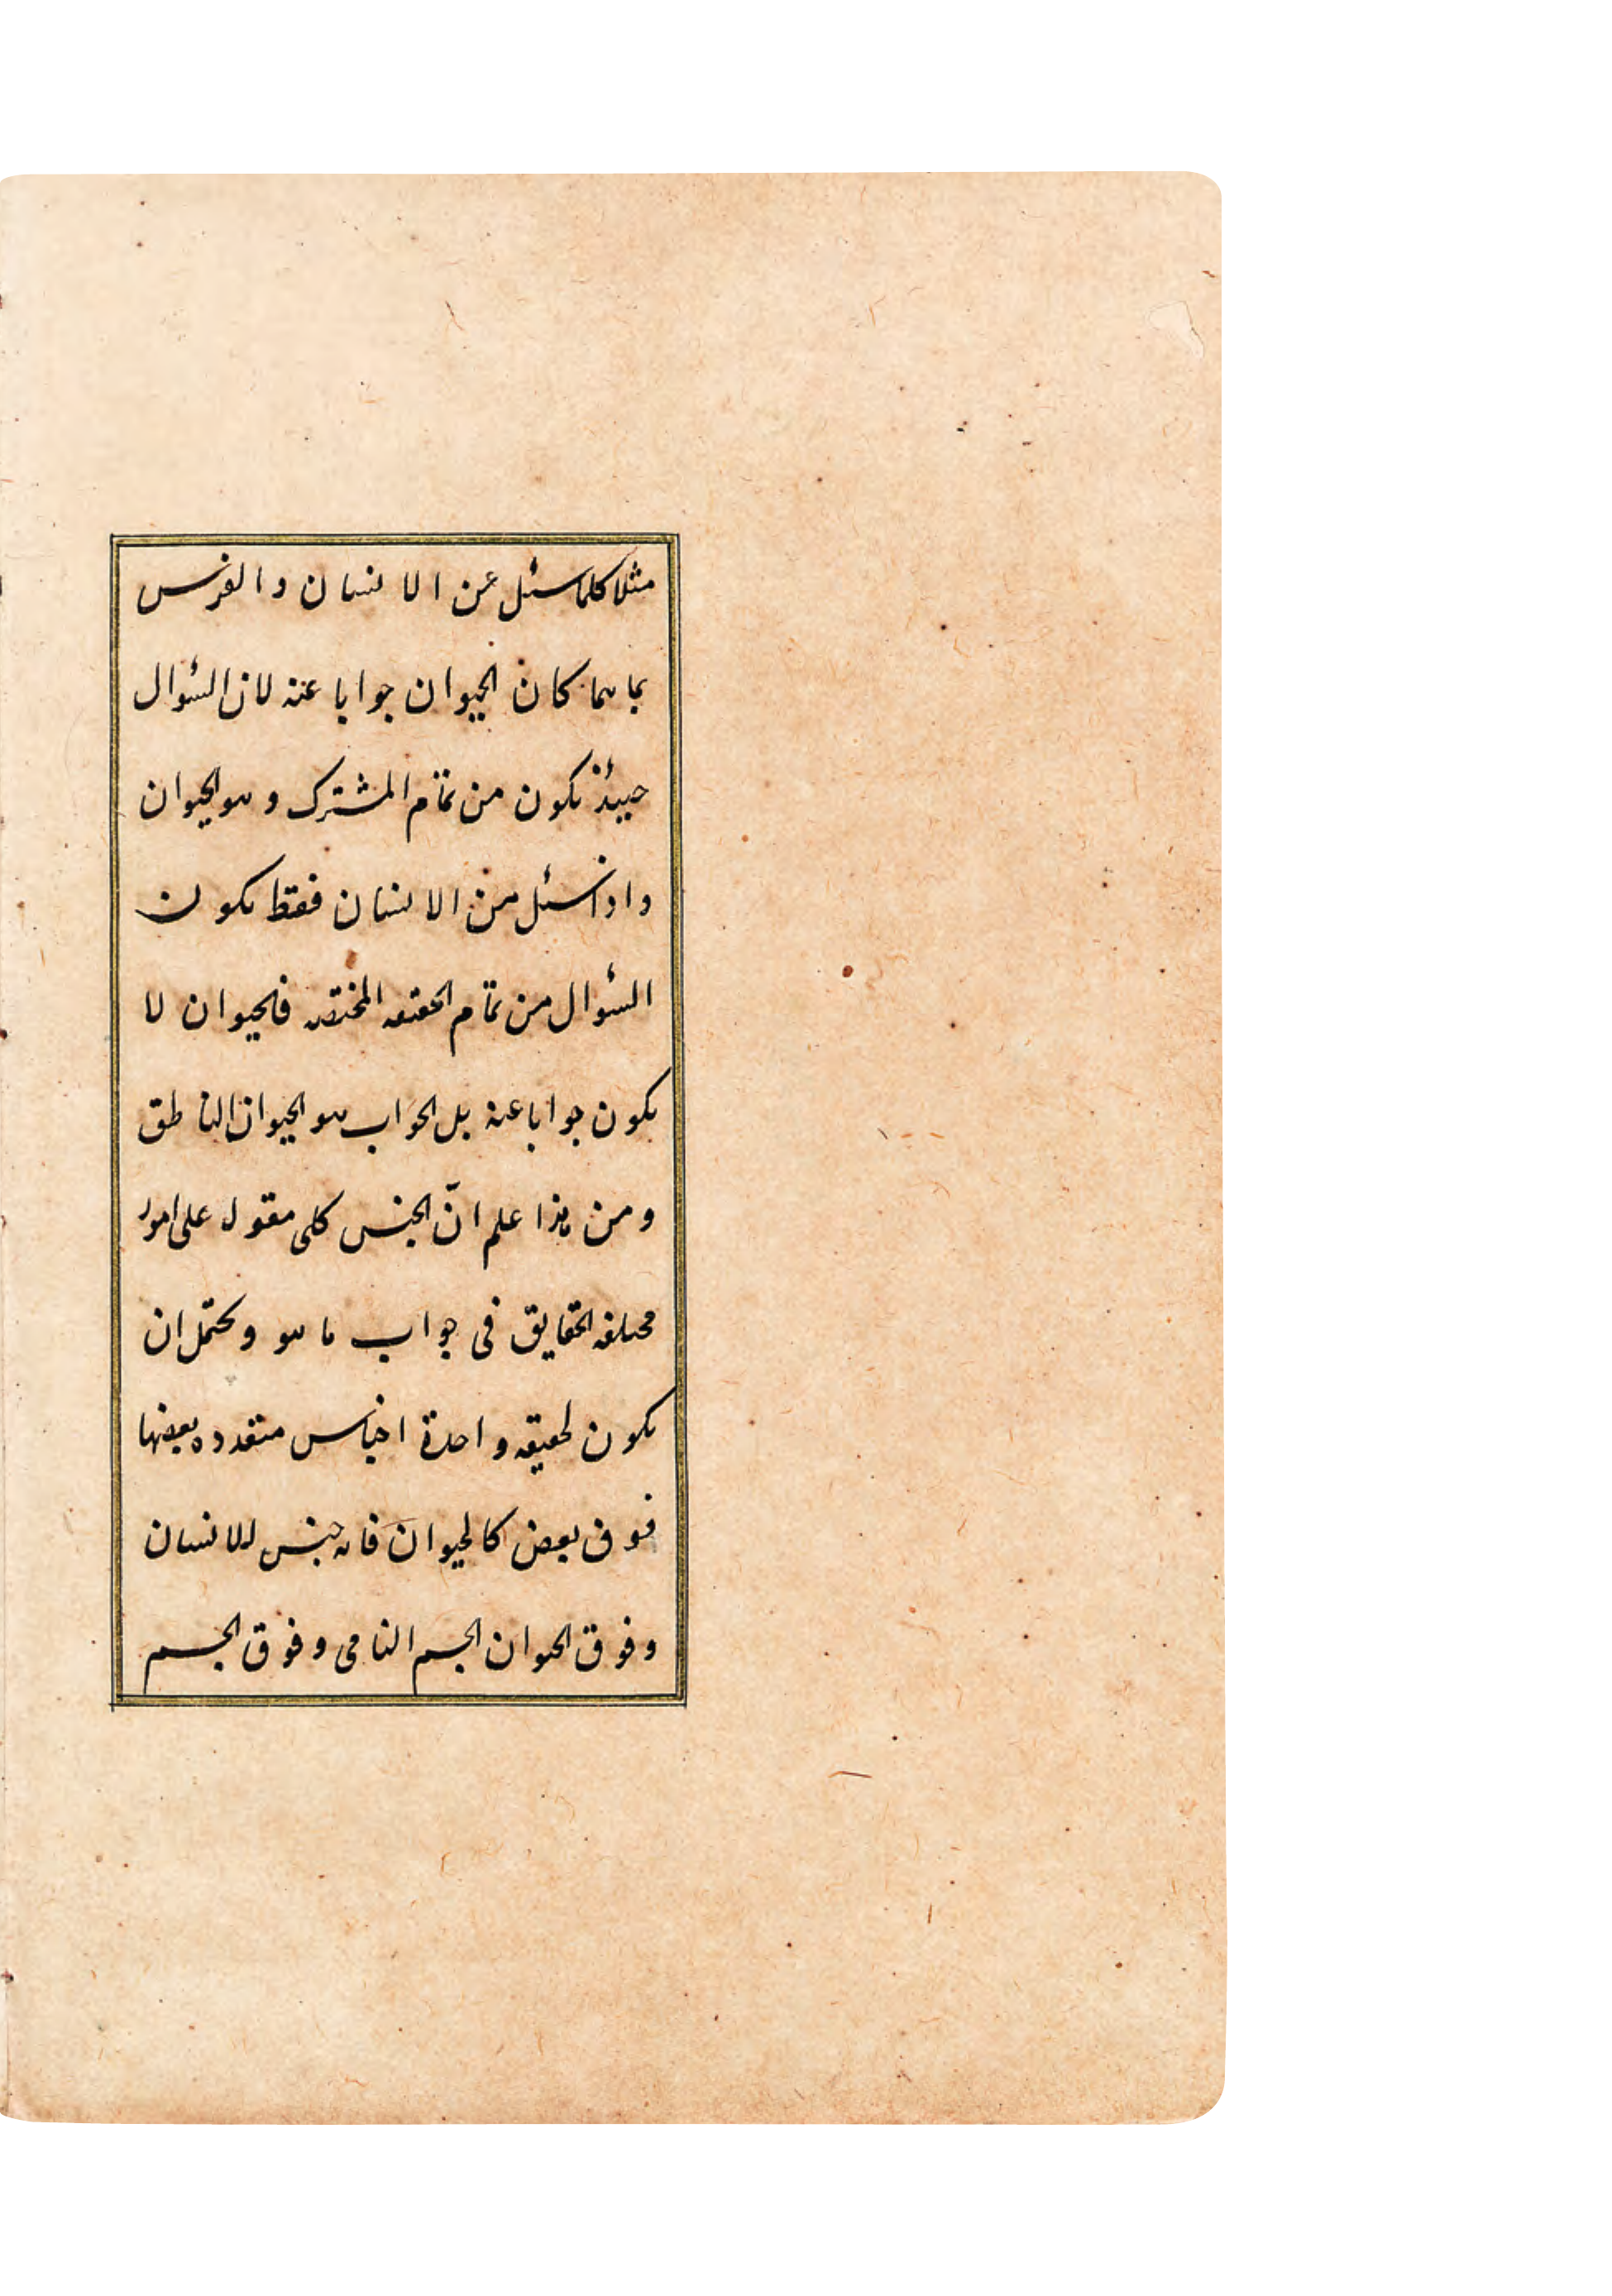 مثلا كلما سئل عن الانسان والفرس
بما هما كان الحيوان جوابا عنه لان السئوال
حينئذ يكون من تمام المشترك وهو الحيوان
واذا سئل من الانسان فقط يكون
السئوال من تمام الحقيقه المختصه فالحيوان لا
يكون جوابا عنه بل الجواب هو الحيوان الناطق
ومن هذا علم انّ الجنس كلى مقول على امور
مختلفه الحقايق فى جواب ما هو ويحتمل ان
يكون لحقيقه واحدة اجناس متعدده بعضها
فوق بعض كالحيوان فانه جنس للانسان
وفوق الحيوان الجسم النامى وفوق الجسم